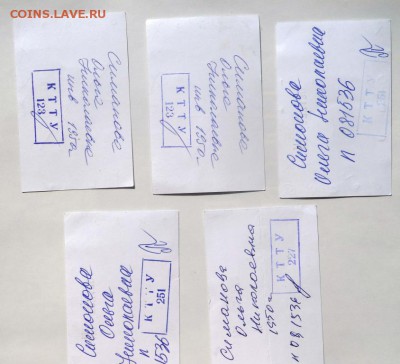 COINS.LAVE.RU
Симанова
Ольга
Николаевна
инв 1950г
КТТУ
123
Симанова
Ольга
Николаевна
инв 1950г
КТТУ
123
Симонова
Ольга Николаевна
П 081536
КТТУ
Симонова
Ольга
Николаевна
П
536
КТТУ
251
Симанова
Ольга
Николаевна
1950г
П 081536
КТТУ
227